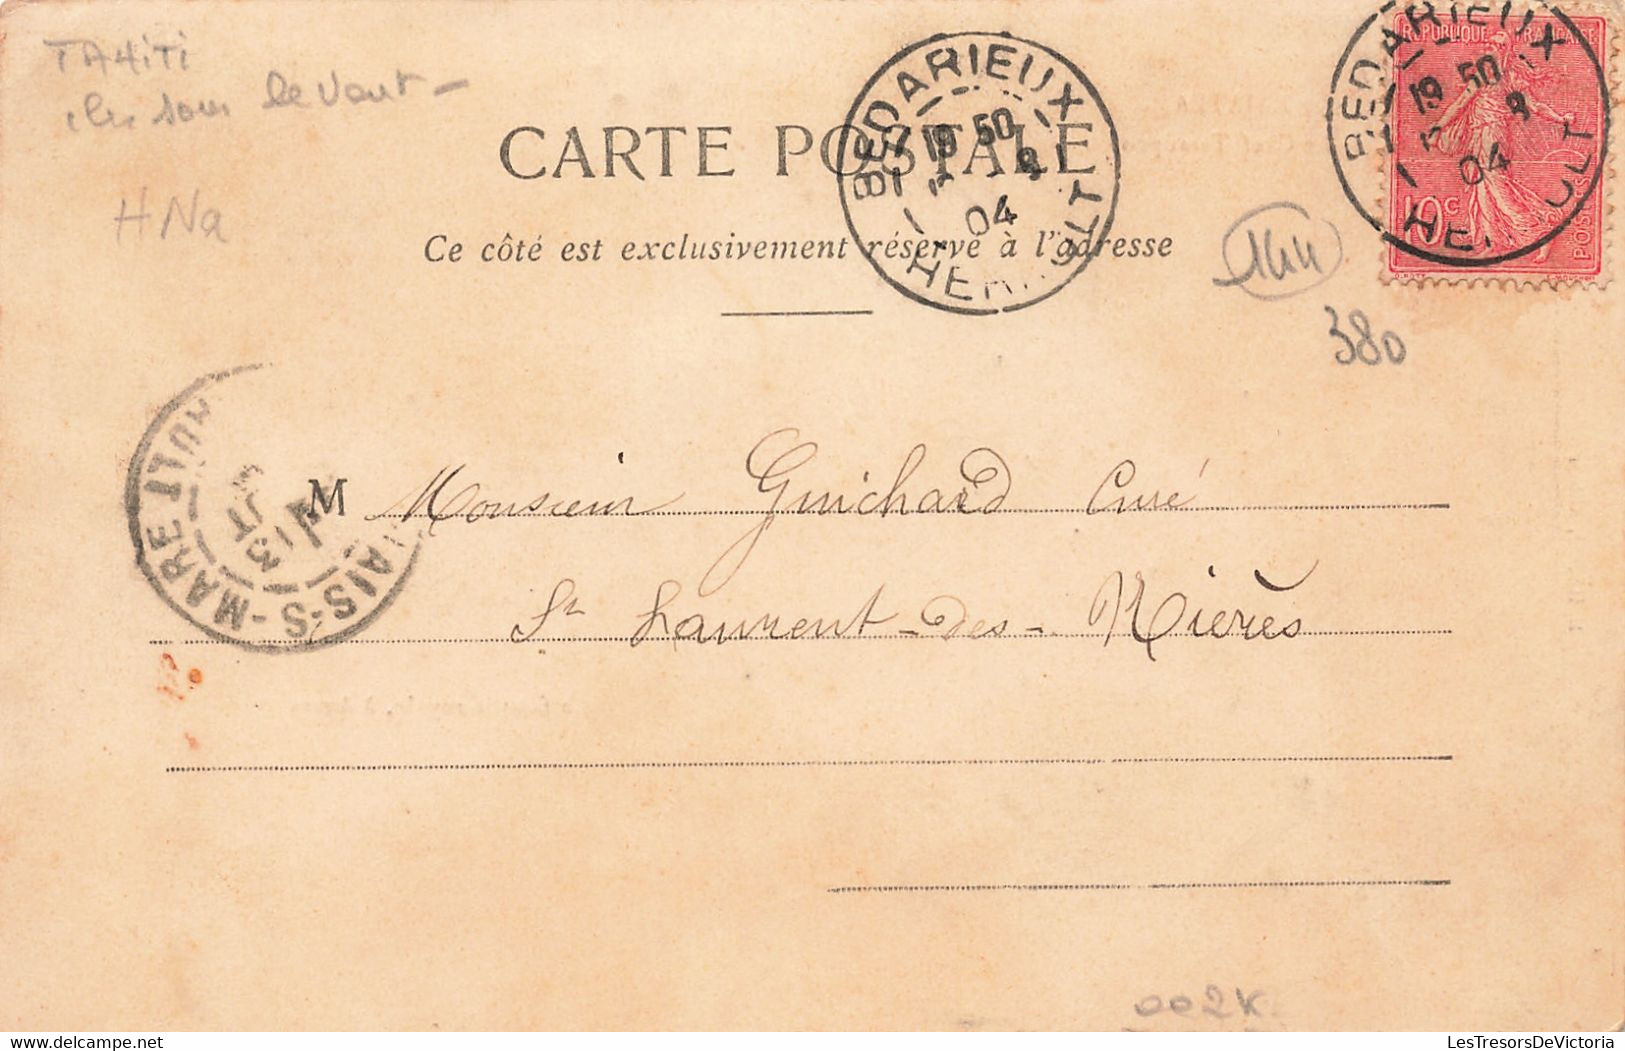 TAHITI
iles sous le vent -
HNa
CARTE POSTALE
Ce côté est exclusivement réservé à l'adresse
BEDARIEUX
19 50
8
04
HERAULT
REPUBLIQUE FRANÇAISE
10c
POSTES
BEDARIEUX
19 50
8
04
HERAULT
144
380
MARE
AIS-S-MARE
13 JT
M Monsieur Guichard Curé
St Laurent-des-Nières
002K
LesTresorsDeVictoria
LesTresorsDeVictoria.delcampe.net